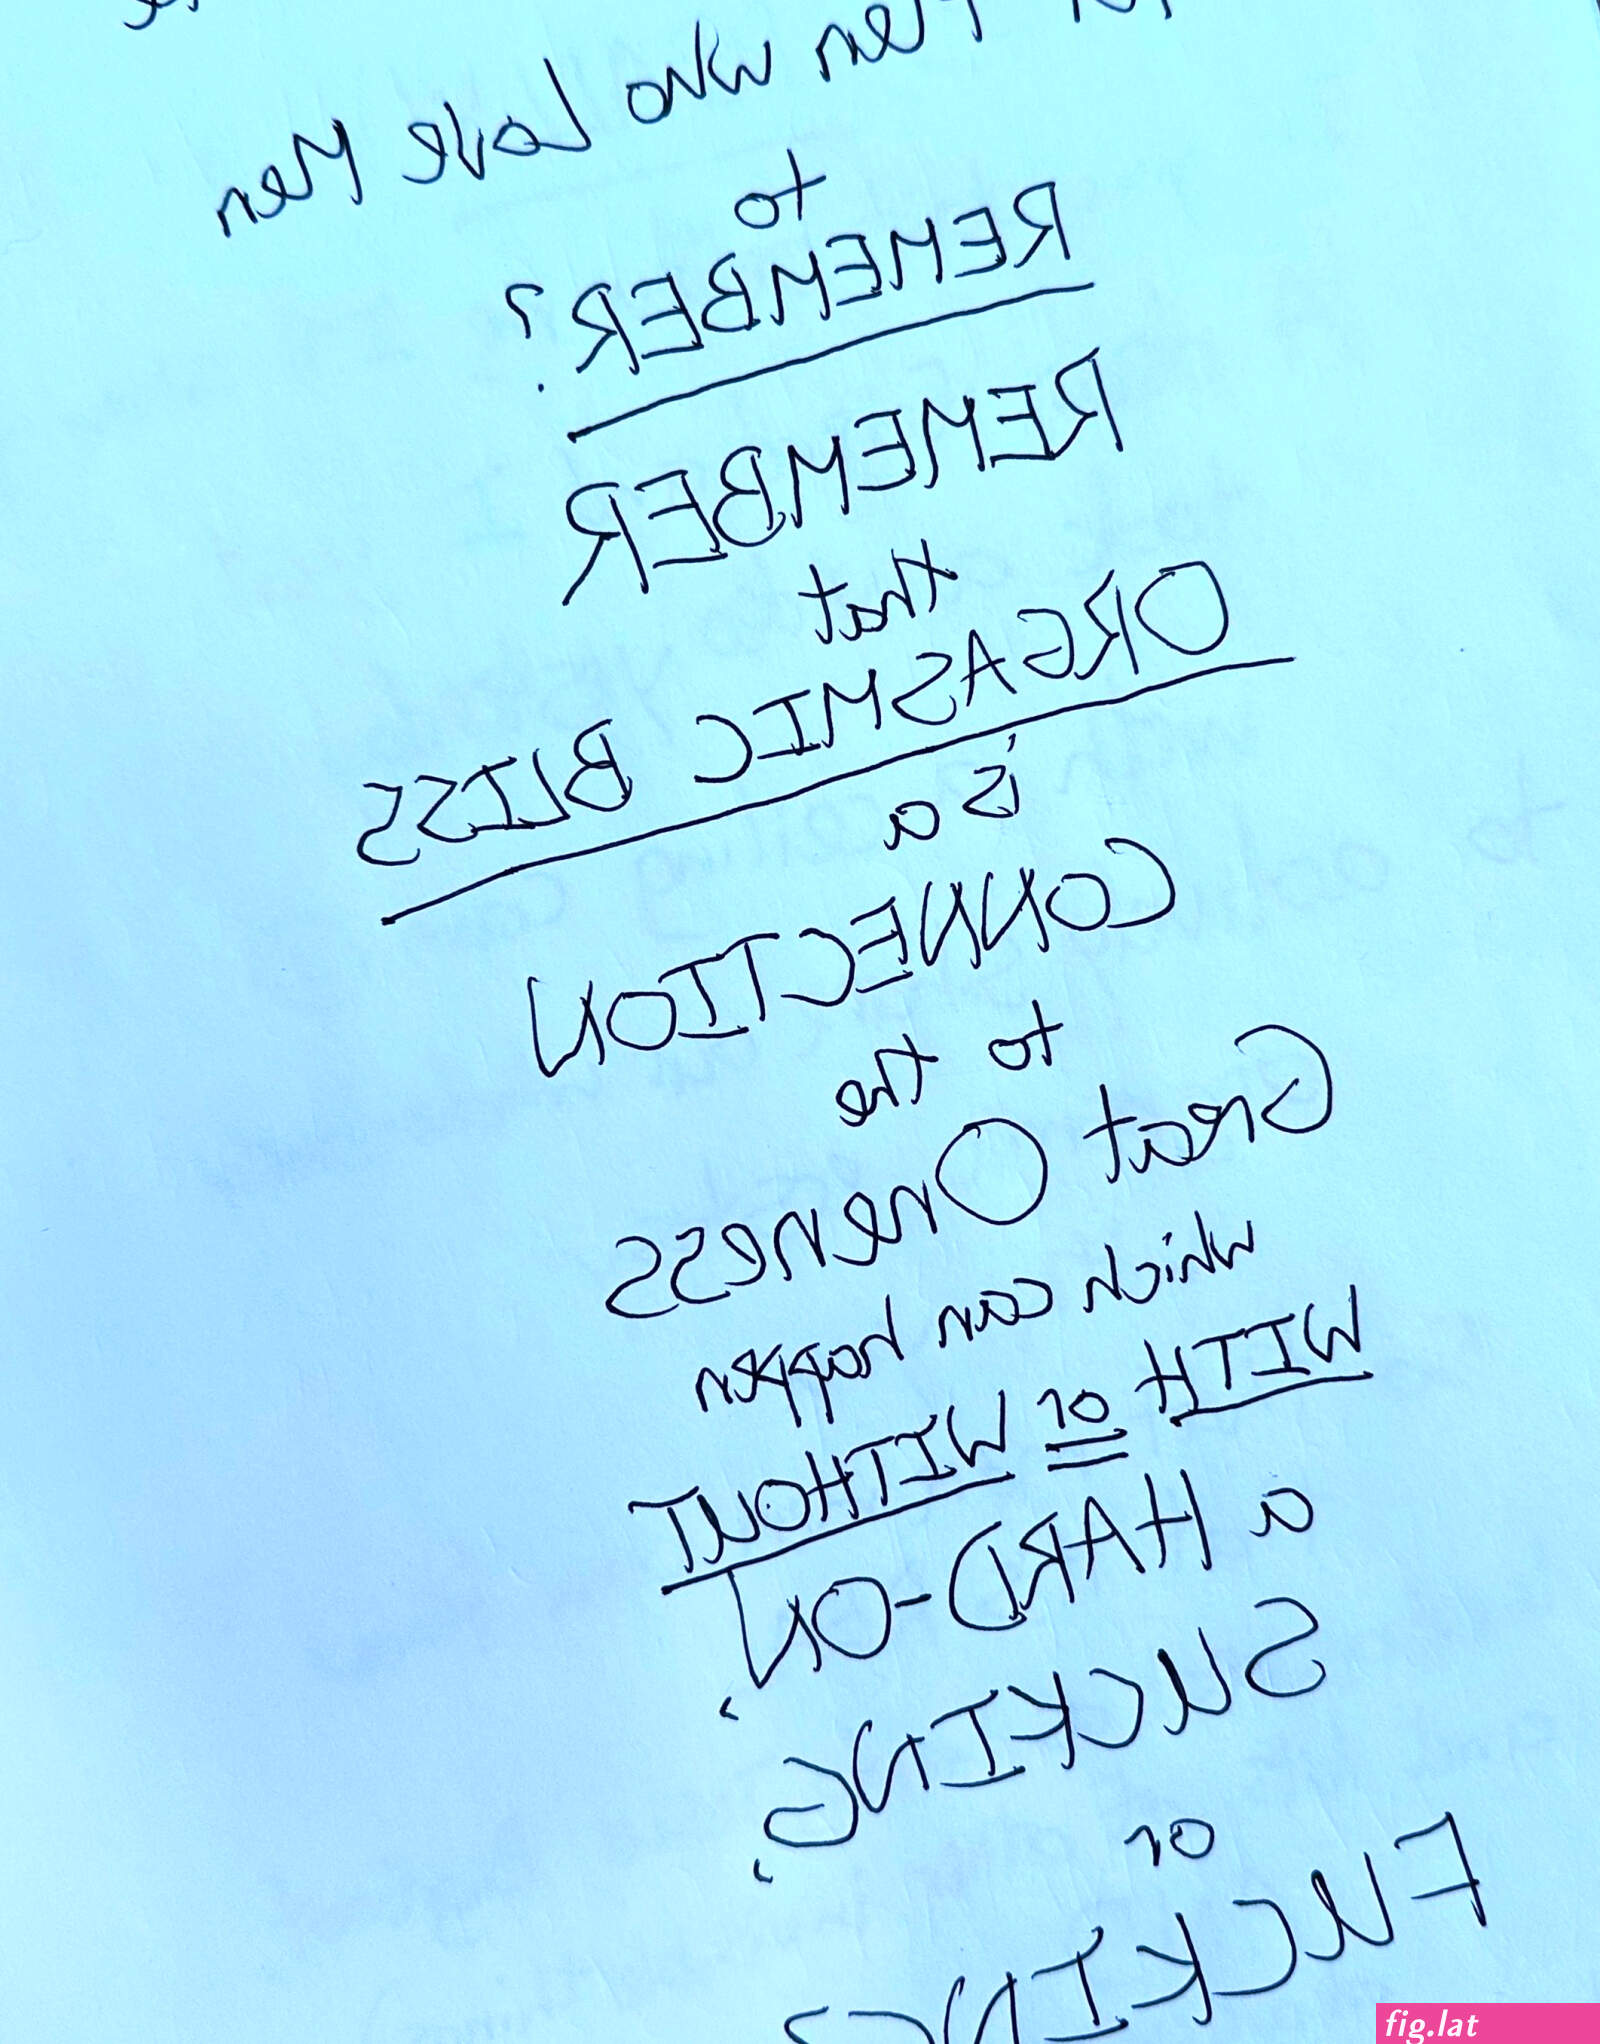 Men who Love Men
to
REMEMBER?
REMEMBER
that
ORGASMIC BLISS
is a
CONNECTION
to the
Great Oneness
which can happen
WITH or WITHOUT
a HARD-ON,
SUCKING,
or
FUCKING
fig.lat